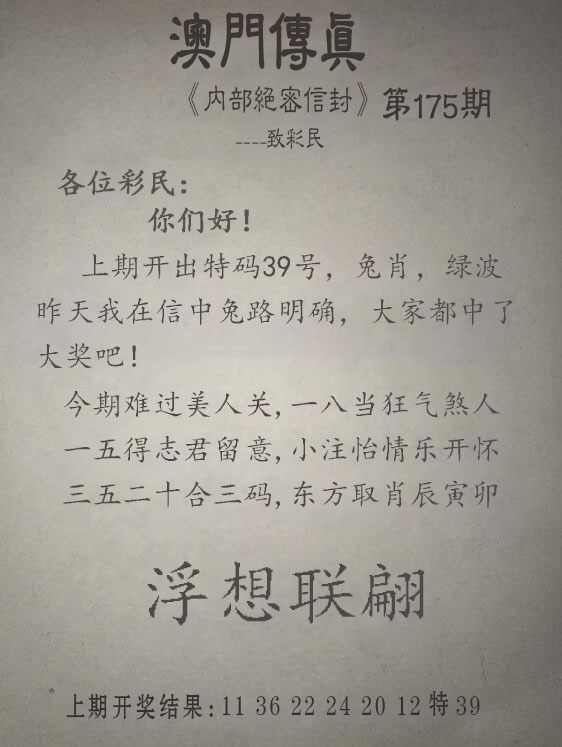 澳門傳眞
《内部絕密信封》第175期
----致彩民
各位彩民：
你们好！
上期开出特码39号，兔肖，绿波
昨天我在信中兔路明确，大家都中了
大奖吧！
今期难过美人关,一八当狂气煞人
一五得志君留意,小注怡情乐开怀
三五二十合三码,东方取肖辰寅卯
浮想联翩
上期开奖结果:11 36 22 24 20 12特39